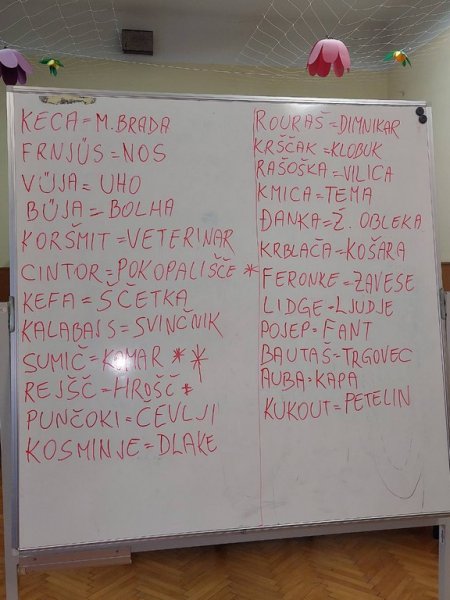 KECA = M. BRADA
FRNJŰS = NOS
VŰJA = UHO
BŰJA = BOLHA
KORŠMIT = VETERINAR
CINTOR = POKOPALIŠČE *
KEFA = ŠČETKA
KALABAJS = SVINČNIK
SUMIČ = KOMAR * *
REJŠČ = HROŠČ *
PUNČOKI = ČEVLJI
KOSMINJE = DLAKE
ROURAŠ = DIMNIKAR
KRŠČAK = KLOBUK
RAŠOŠKA = VILICA
KMICA = TEMA
ĐANKA = Ž. OBLEKA
KRBLAČA = KOŠARA
FERONKE = ZAVESE
LIDGE = LJUDJE
POJEP = FANT
BAUTAŠ = TRGOVEC
AUBA = KAPA
KUKOUT = PETELIN